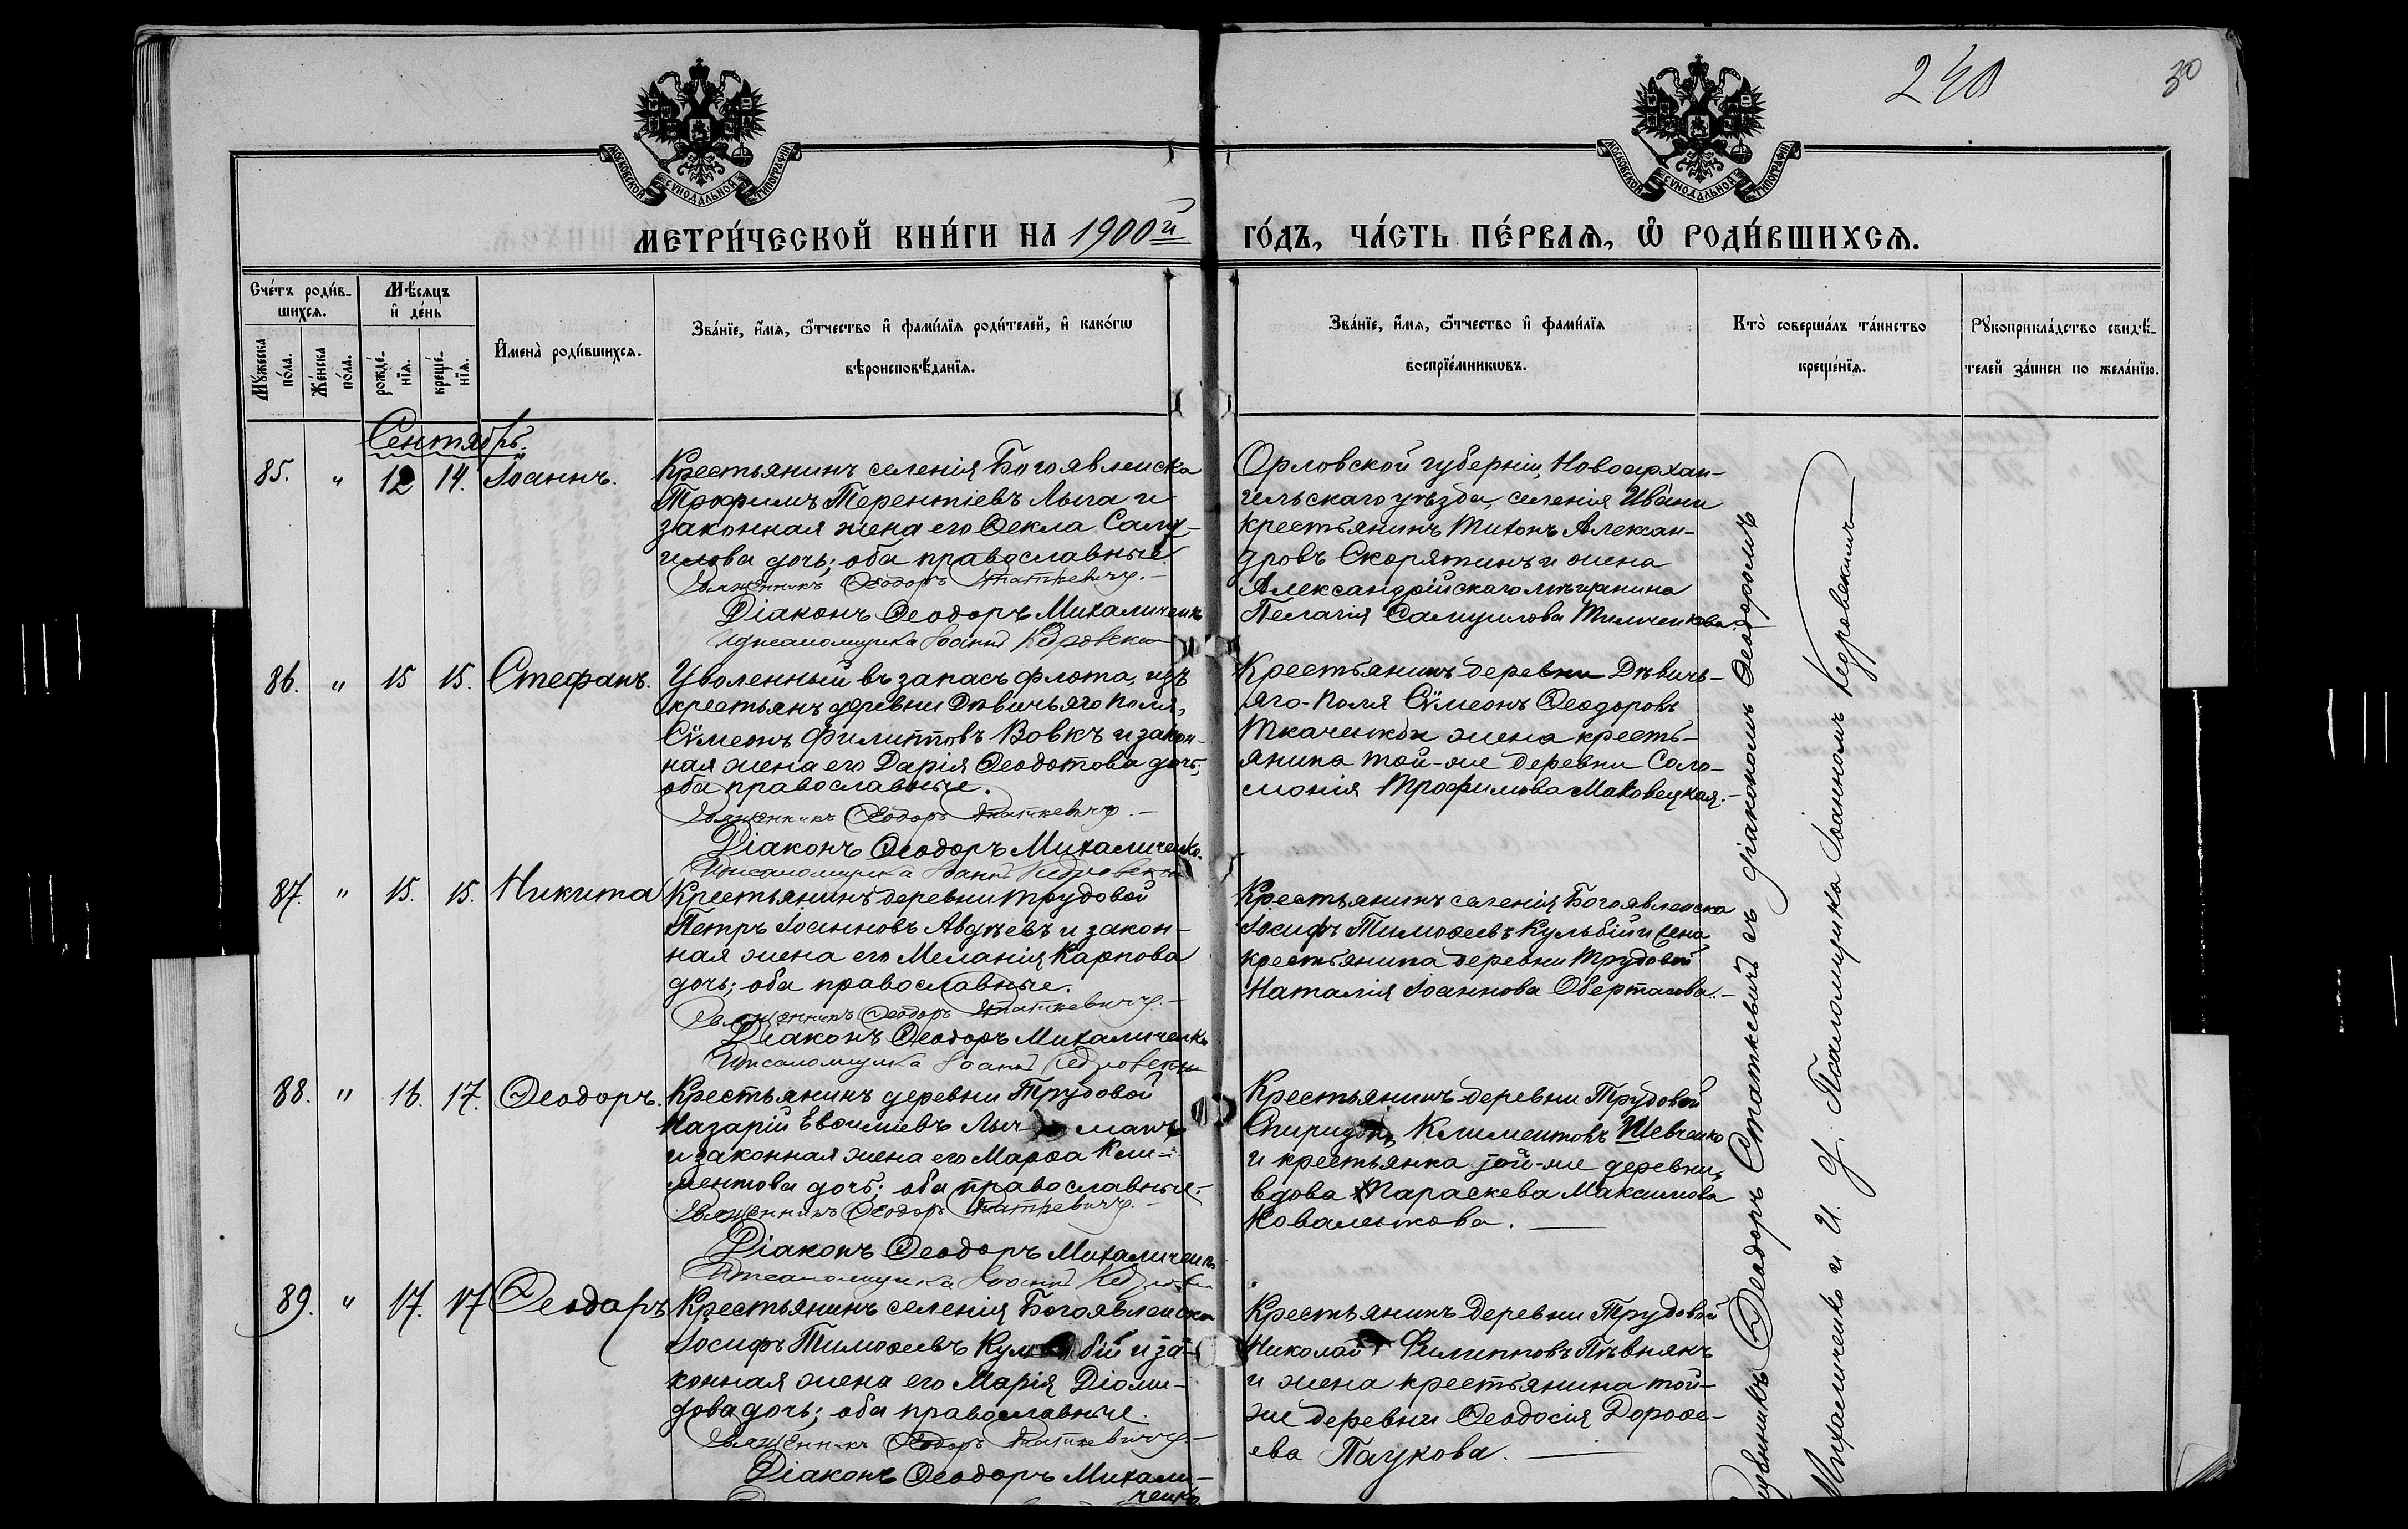 240
30
МОСКОВСКОЙ СУНОДАЛЬНОЙ ТИПОГРАФІИ
МОСКОВСКОЙ СУНОДАЛЬНОЙ ТИПОГРАФІИ
МЕТРИ́ЧЕСКОЙ КНИ́ГИ НА 1900й ГО́ДЪ, ЧА́СТЬ ПЕ́РВАѦ, Ѡ РОДИ́ВШИХСѦ.
Сче́тъ роди́в-
шихсѧ.
Мꙋ́жеска по́ла.
Же́нска по́ла.
Мѣ́сѧцъ
и҆ де́нь
рожде́-
нїѧ.
креще́-
нїѧ.
И҆мена̀ роди́вшихсѧ.
Зва́нїе, и҆́мѧ, ѻ҆́тчество и҆ фами́лїѧ роди́телей, и҆ како́гѡ
вѣроисповѣ́данїѧ.
Зва́нїе, и҆́мѧ, ѻ҆́тчество и҆ фами́лїѧ
воспрїе́мникѡвъ.
Кто̀ соверша́лъ та́инство
креще́нїѧ.
Рꙋкоприкла́дство свидѣ́-
телей за́писи по жела́нїю.
Сентябрь.
85. " 12 14. Іоаннъ.
Крестьянинъ селенія Богоявленска
Трофимъ Терентіевъ Лыга и
законная жена его Ѳекла Саму-
илова дочь; оба православные.
Священникъ Ѳеодоръ Статкевичъ.
Діаконъ Ѳеодоръ Михаличенко
Псаломщика Іоаннъ Кедровскій
Орловской губерніи, Новоархан-
гельскаго уѣзда, селенія Ивани
крестьянинъ Тихонъ Алексан-
дровъ Скорятинъ и жена
Александрійскаго мѣщанина
Пелагія Самуилова Тимченкова.
86. " 15 15. Стефанъ.
Уволенный въ запасъ флота, изъ
крестьянъ деревни Дѣвичьяго поля,
Сѵмеонъ Филипповъ Вовкъ и закон-
ная жена его Дарія Ѳеодотова дочь;
оба православные.
Священникъ Ѳеодоръ Статкевичъ.
Діаконъ Ѳеодоръ Михаличенко.
Псаломщика Іоаннъ Кедровскій
Крестьянинъ деревни Дѣвичь-
яго-Поля Сѵмеонъ Ѳеодоровъ
Ткаченко и жена кресть-
янина той-же деревни Соло-
монія Трофимова Маковецкая.
87. " 15. 15. Никита
Крестьянинъ деревни Трудовой
Петръ Іоанновъ Авдѣевъ и закон-
ная жена его Меланія Карпова
дочь; оба православные.
Священникъ Ѳеодоръ Статкевичъ.
Діаконъ Ѳеодоръ Михаличенко
Псаломщика Іоаннъ Кедровскій
Крестьянинъ селенія Богоявленска
Іосифъ Тимоѳеевъ Кульбій и жена
крестьянина деревни Трудовой
Наталія Іоаннова Обертасова.
88. " 16. 17. Ѳеодоръ.
Крестьянинъ деревни Трудовой
Назарій Евѳиміевъ Лыч- манъ
и законная жена его Марѳа Кли-
ментова дочь; оба православные.
Священникъ Ѳеодоръ Статкевичъ.
Діаконъ Ѳеодоръ Михаличенко
Псаломщика Іоаннъ Кедровскій
Крестьянинъ деревни Трудовой
Спиридонъ Климентовъ Шевченко
и крестьянка той-же деревни,
вдова Параскева Максимова
Коваленкова.
89. " 17. 17 Ѳеодоръ
Крестьянинъ селенія Богоявленска
Іосифъ Тимоѳеевъ Кульбій и за-
конная жена его Марія Діоми-
дова дочь; оба православные.
Священникъ Ѳеодоръ Статкевичъ.
Діаконъ Ѳеодоръ Михали-
ченко
Крестьянинъ деревни Трудовой
Николай Филипповъ Пѣвнянъ
и жена крестьянина той-
же деревни Ѳеодосія Дороѳе-
ева Паукова.
Священникъ Ѳеодоръ Статкевичъ съ діакономъ Ѳеодоромъ
Михаличенко и И. д. Псаломщика Іоанномъ Кедровскимъ